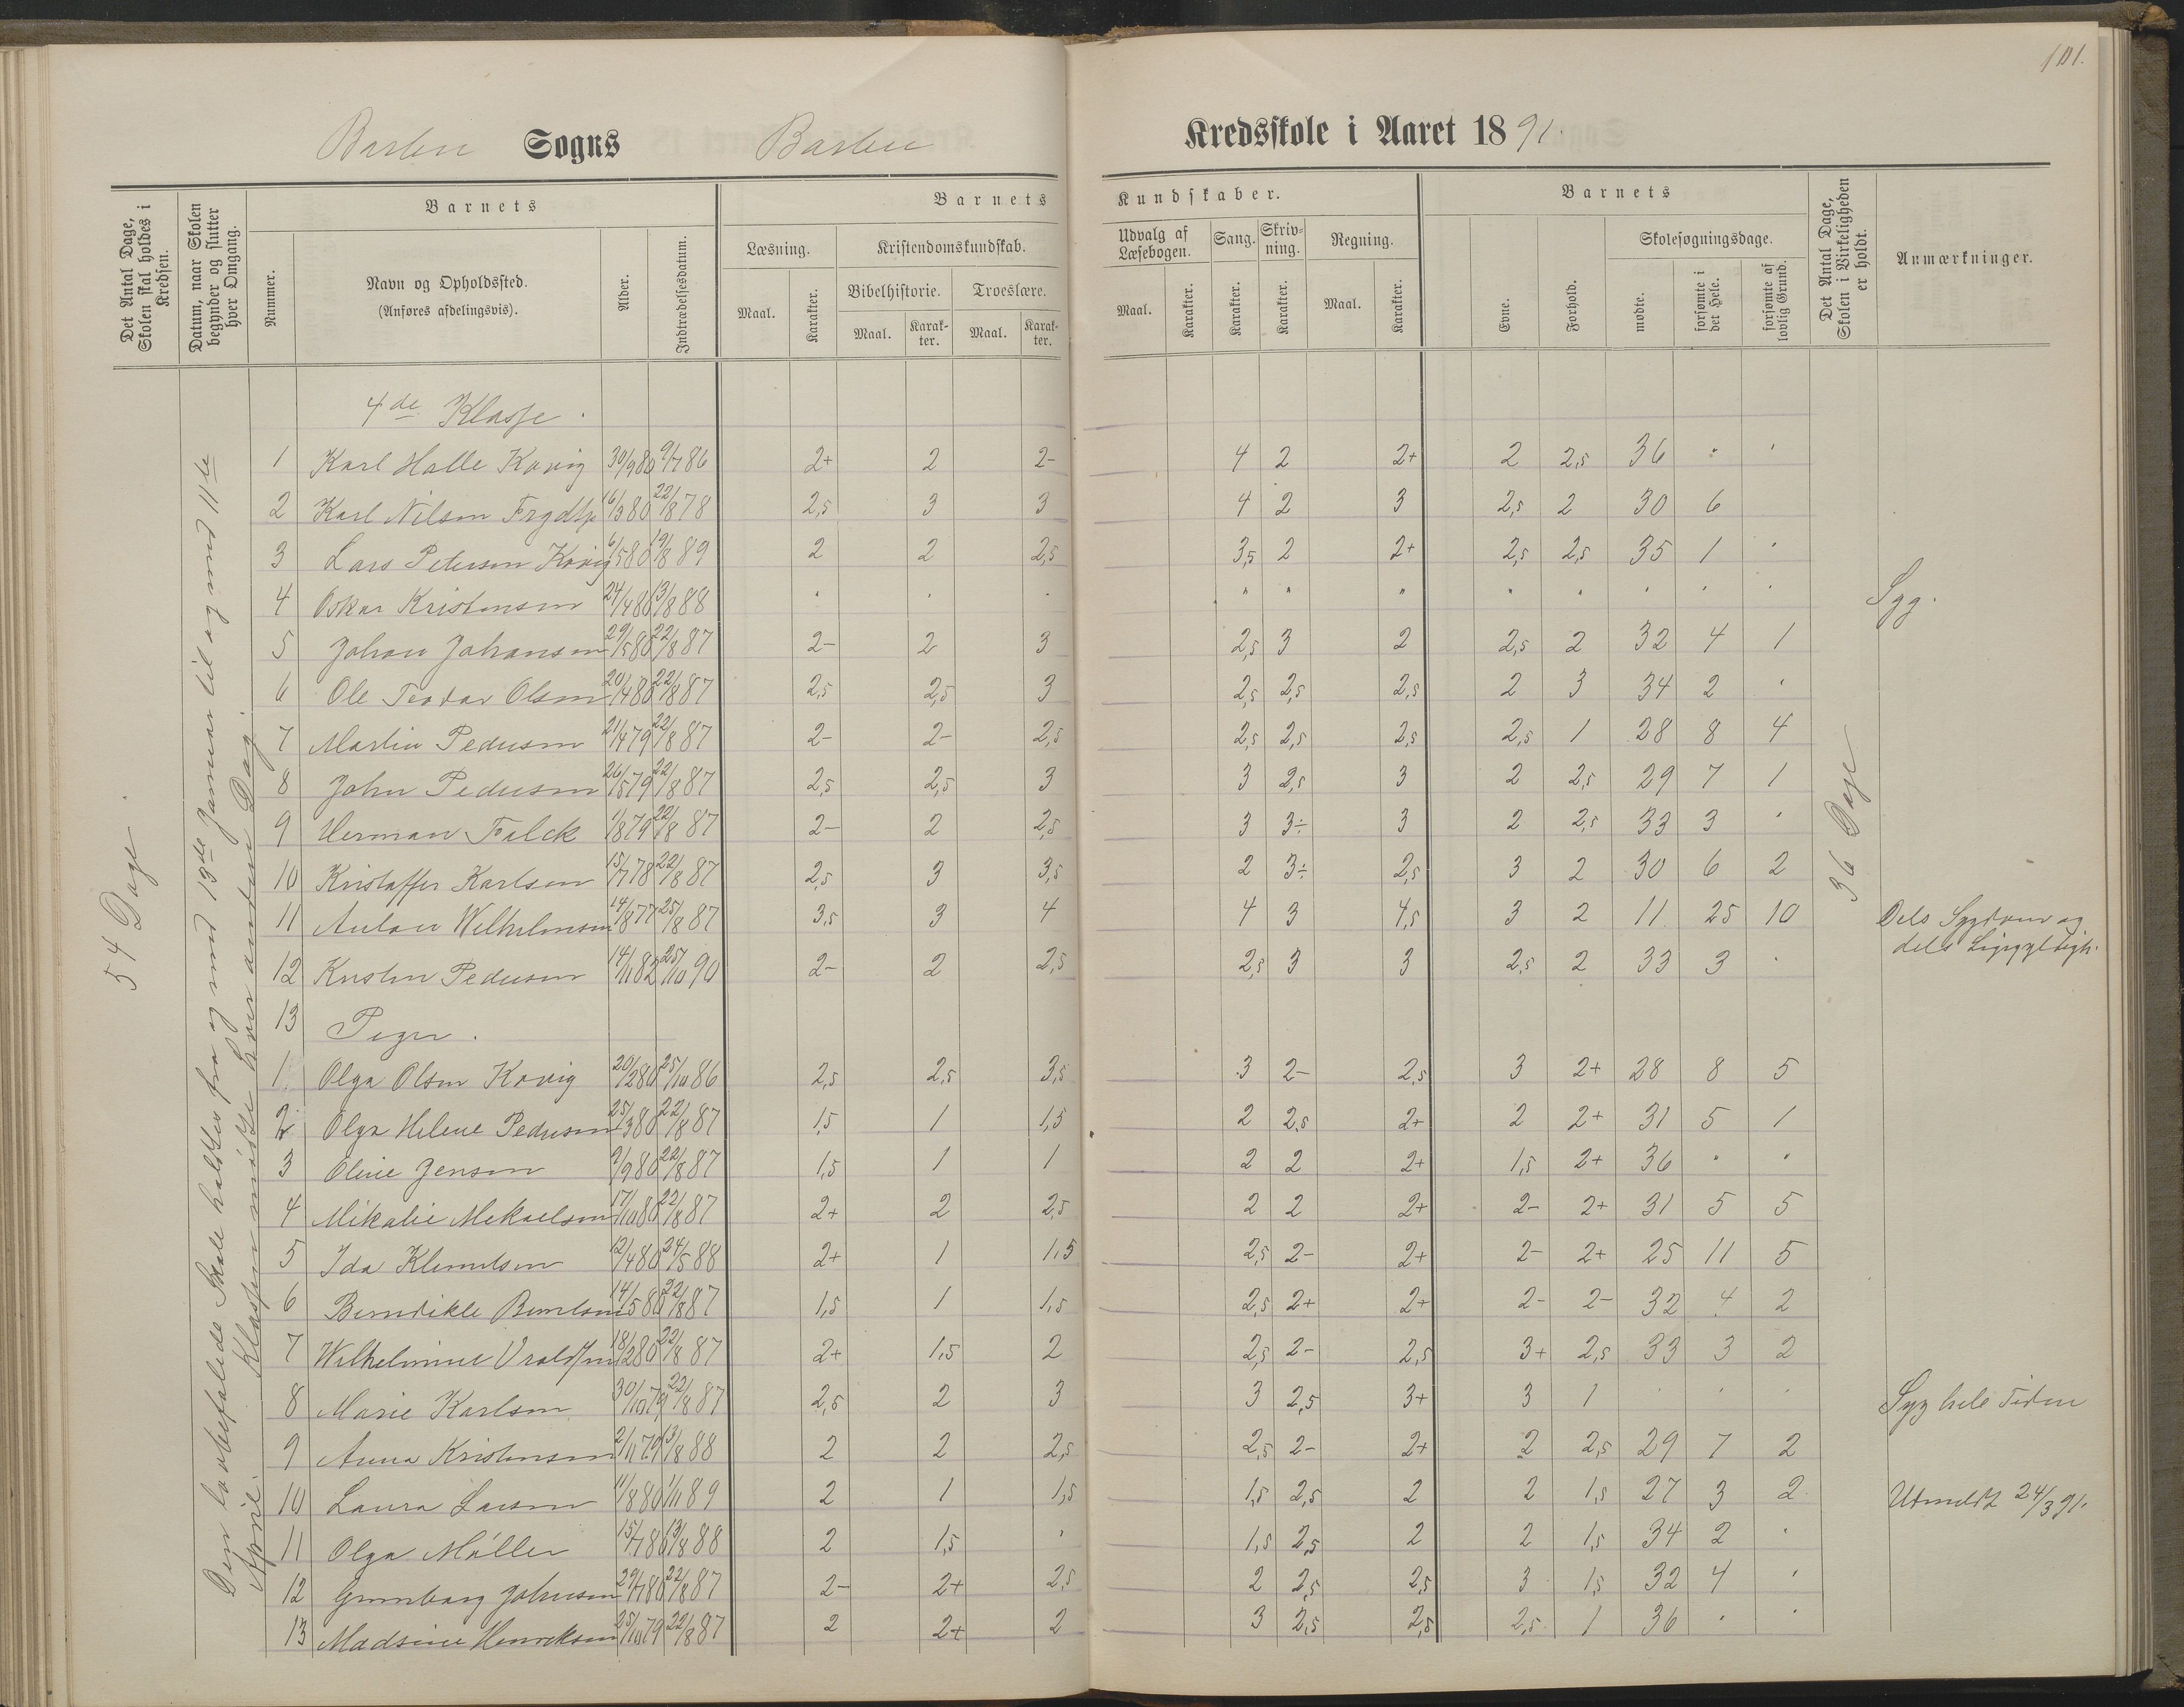 101.
Barbu Sogns Barbu Kredsskole i Aaret 1891.
Det Antal Dage, Skolen skal holdes i Kredsen.
Datum, naar Skolen begynder og slutter hver Omgang.
Barnets
Nummer.
Navn og Opholdssted.
(Anføres afdelingsvis).
Alder.
Indtrædelsesdatum.
Barnets Kundskaber.
Læsning.
Maal.
Karakter.
Kristendomskundskab.
Bibelhistorie.
Maal.
Karak-
ter.
Troeslære.
Maal.
Karak-
ter.
Udvalg af
Læsebogen.
Maal.
Karakter.
Sang.
Karakter.
Skriv-
ning.
Karakter.
Regning.
Maal.
Karakter.
Barnets
Evne.
Forhold.
Skolesøgningsdage.
mødte.
forsømte i det Hele.
forsømte af lovlig Grund.
Det Antal Dage, Skolen i Virkeligheden er holdt.
Anmærkninger.
54 Dage.
Den lovbefalede Skole holdtes fra og med 13de Januar til og med 11te
April. Klassen mødte hver anden Dag.
36 Dage
4de Klasse.
1 Karl Halle Kovig 30/9 80 9/7 86 2+ 2 2- 4 2 2+ 2 2,5 36 " "
2 Karl Nilsen 16/3 80 22/8 78 2,5 3 3 4 2 3 2,5 2 30 6
3 Lars Petersen Kovig 6/5 80 19/8 89 2 2 2,5 3,5 2 2+ 2,5 2,5 35 1 "
4 Oskar Kristensen 24/4 80 13/8 88 " " " " " " " " " " " Syg.
5 Johan Johansen 29/5 80 22/8 87 2- 2 3 2,5 3 2 2,5 2 32 4 1
6 Ole Teodor Olsen 20/4 80 22/8 87 2,5 2,5 3 2,5 2,5 2,5 2 3 34 2 "
7 Martin Pedersen 21/4 79 22/8 87 2- 2- 2,5 2,5 2,5 2,5 2,5 1 28 8 4
8 John Pedersen 26/5 79 22/8 87 2,5 2,5 3 3 2,5 3 2 2,5 29 7 1
9 Herman Falck 1/8 79 22/8 87 2- 2 2,5 3 3÷ 3 2 2,5 33 3 "
10 Kristoffer Karlsen 15/7 78 22/8 87 2,5 3 3,5 2 3÷ 2,5 3 2 30 6 2
11 Anton Wilhelmsen 14/8 77 25/8 87 3,5 3 4 4 3 4,5 3 2 11 25 10 Dels Sygdom og
dels Ligegyldigh.
12 Kristen Pedersen 14/11 82 25/10 90 2- 2 2,5 2,5 3 3 2,5 2 33 3 "
13 Piger.
1 Olga Olsen Kovig 20/2 80 25/10 86 2,5 2,5 3,5 3 2- 2,5 3 2+ 28 8 5
2 Olga Helene Pedersen 25/3 80 22/8 87 1,5 1 1,5 2 2,5 2+ 2 2+ 31 5 1
3 Oline Jensen 9/9 80 22/8 87 1,5 1 1 2 2 2+ 1,5 2+ 36 " "
4 Mikalie Mekaelsen 17/10 80 22/8 87 2+ 2 2,5 2 2 2+ 2- 2+ 31 5 5
5 Ida Klemetsen 12/4 80 24/5 88 2+ 1 1,5 2,5 2- 2+ 2- 2+ 25 11 5
6 Berndikke Berntsen 14/5 80 22/8 87 1,5 1 1,5 2,5 2+ 2+ 2- 2- 32 4 2
7 Wilhelmine 18/2 80 22/8 87 2+ 1,5 2 2,5 2- 2,5 3+ 2,5 33 3 2
8 Marie Karlsen 30/10 79 22/8 87 2,5 2 3 3 2,5 3+ 3 1 " " " Syg hele Tiden
9 Anna Kristensen 2/11 79 13/8 88 2 2 2,5 2,5 2- 2+ 2 2,5 29 7 2
10 Laura Larsen 11/8 80 1/11 89 2 1 1,5 1,5 2,5 2 2 1,5 27 3 2 Utmeldt 24/3 91.
11 Olga Møller 15/7 80 13/8 88 2 1,5 " 1,5 2,5 2 2 1,5 34 2 "
12 Gunborg Johnsen 29/7 80 22/8 87 2- 2+ 2,5 2 2,5 2,5 3 1,5 32 4 "
13 Madsine Henriksen 25/10 79 22/8 87 2 2+ 2 3 2,5 2,5 2,5 1 36 " "